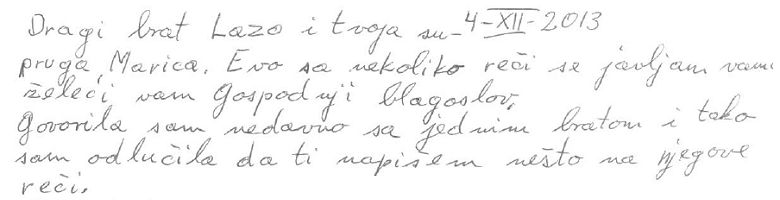 Dragi brat Lazo i tvoja su- 4-XII-2013
pruga, Marica. Evo sa nekoliko reči se javljam vama
želeći vam Gospodnji blagoslov,
Govorila sam nedavno sa jednim bratom i tako
sam odlučila da ti napišem nešto na njegove
reči.